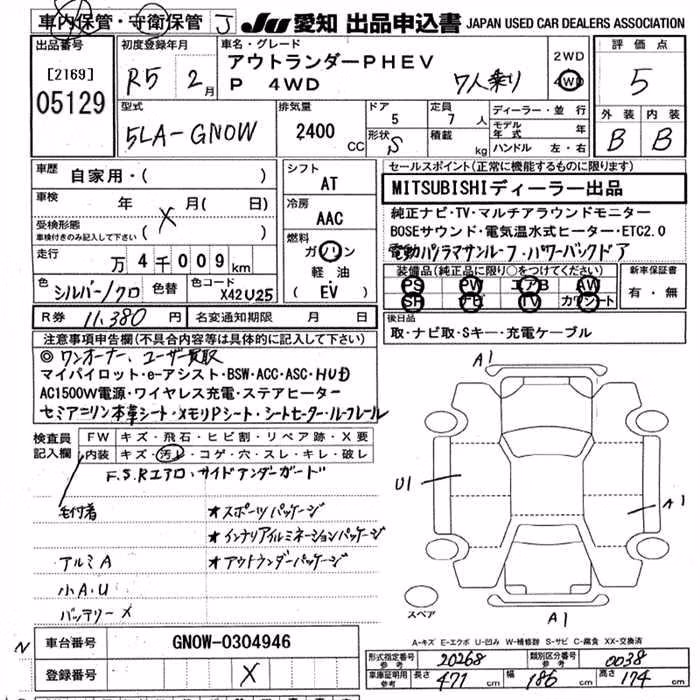 車内保管・守衛保管 J JU 愛知 出品申込書 JAPAN USED CAR DEALERS ASSOCIATION
出品番号
[2169]
05129
初度登録年月
R5 2月
車名・グレード
アウトランダーPHEV
P 4WD 7人乗り
2WD
4WD
評価点
5
型式
5LA-GN0W
排気量
2400 CC
ドア
5
形状 S
定員
7 人
積載 kg
ディーラー・並行
モデル年式 年
ハンドル 左・右
外装 内装
B B
車歴
自家用・( )
車検 年 月( 日)
受検形態
車検付きのみ記入して下さい ( X )
走行
万4千009km
色 シルバー/クロ 色替 色コード X42U25
シフト
AT
冷房
AAC
燃料
ガソリン
軽油
( EV )
セールスポイント(正常に機能するものに限ります)
MITSUBISHIディーラー出品
純正ナビ・TV・マルチアラウンドモニター
BOSEサウンド・電気温水式ヒーター・ETC2.0
電動パノラマサンルーフ・パワーバックドア
装備品(純正品に限り○をつけてください)
PS PW エアB AW
SR TV カワシート
新車保証書
有・無
R券 11,380 円 名変通知期限 月 日
後日品
取・ナビ取・Sキー・充電ケーブル
注意事項申告欄(不具合内容等は具体的に記入して下さい)
◎ワンオーナー、ユーザー買取
マイパイロット・e-アシスト・BSW・ACC・ASC・HUD
AC1500W電源・ワイヤレス充電・ステアヒーター
セミアニリン本革シート・メモリPシート・シートヒーター・ルーフレール
検査員記入欄
FW キズ・飛石・ヒビ割・リペア跡・X要
内装 キズ・汚レ・コゲ・穴・スレ・キレ・破レ
F.S.Rエアロ・サイドアンダーガード
毛付着 ★スポーツパッケージ
★インテリアイルミネーションパッケージ
アルミA ★アウトランダーパッケージ
小A.U
バッテリーX
A1
U1
A1
スペア
A1
A-キズ E-エクボ U-凹み W-補修跡 S-サビ C-腐食 XX-交換済
N 車台番号 GN0W-0304946
登録番号 X
形式指定番号 参考 20268 類別区分番号 参考 0038
車庫証明用 参考 長さ 471 cm 幅 186 cm 高さ 174 cm